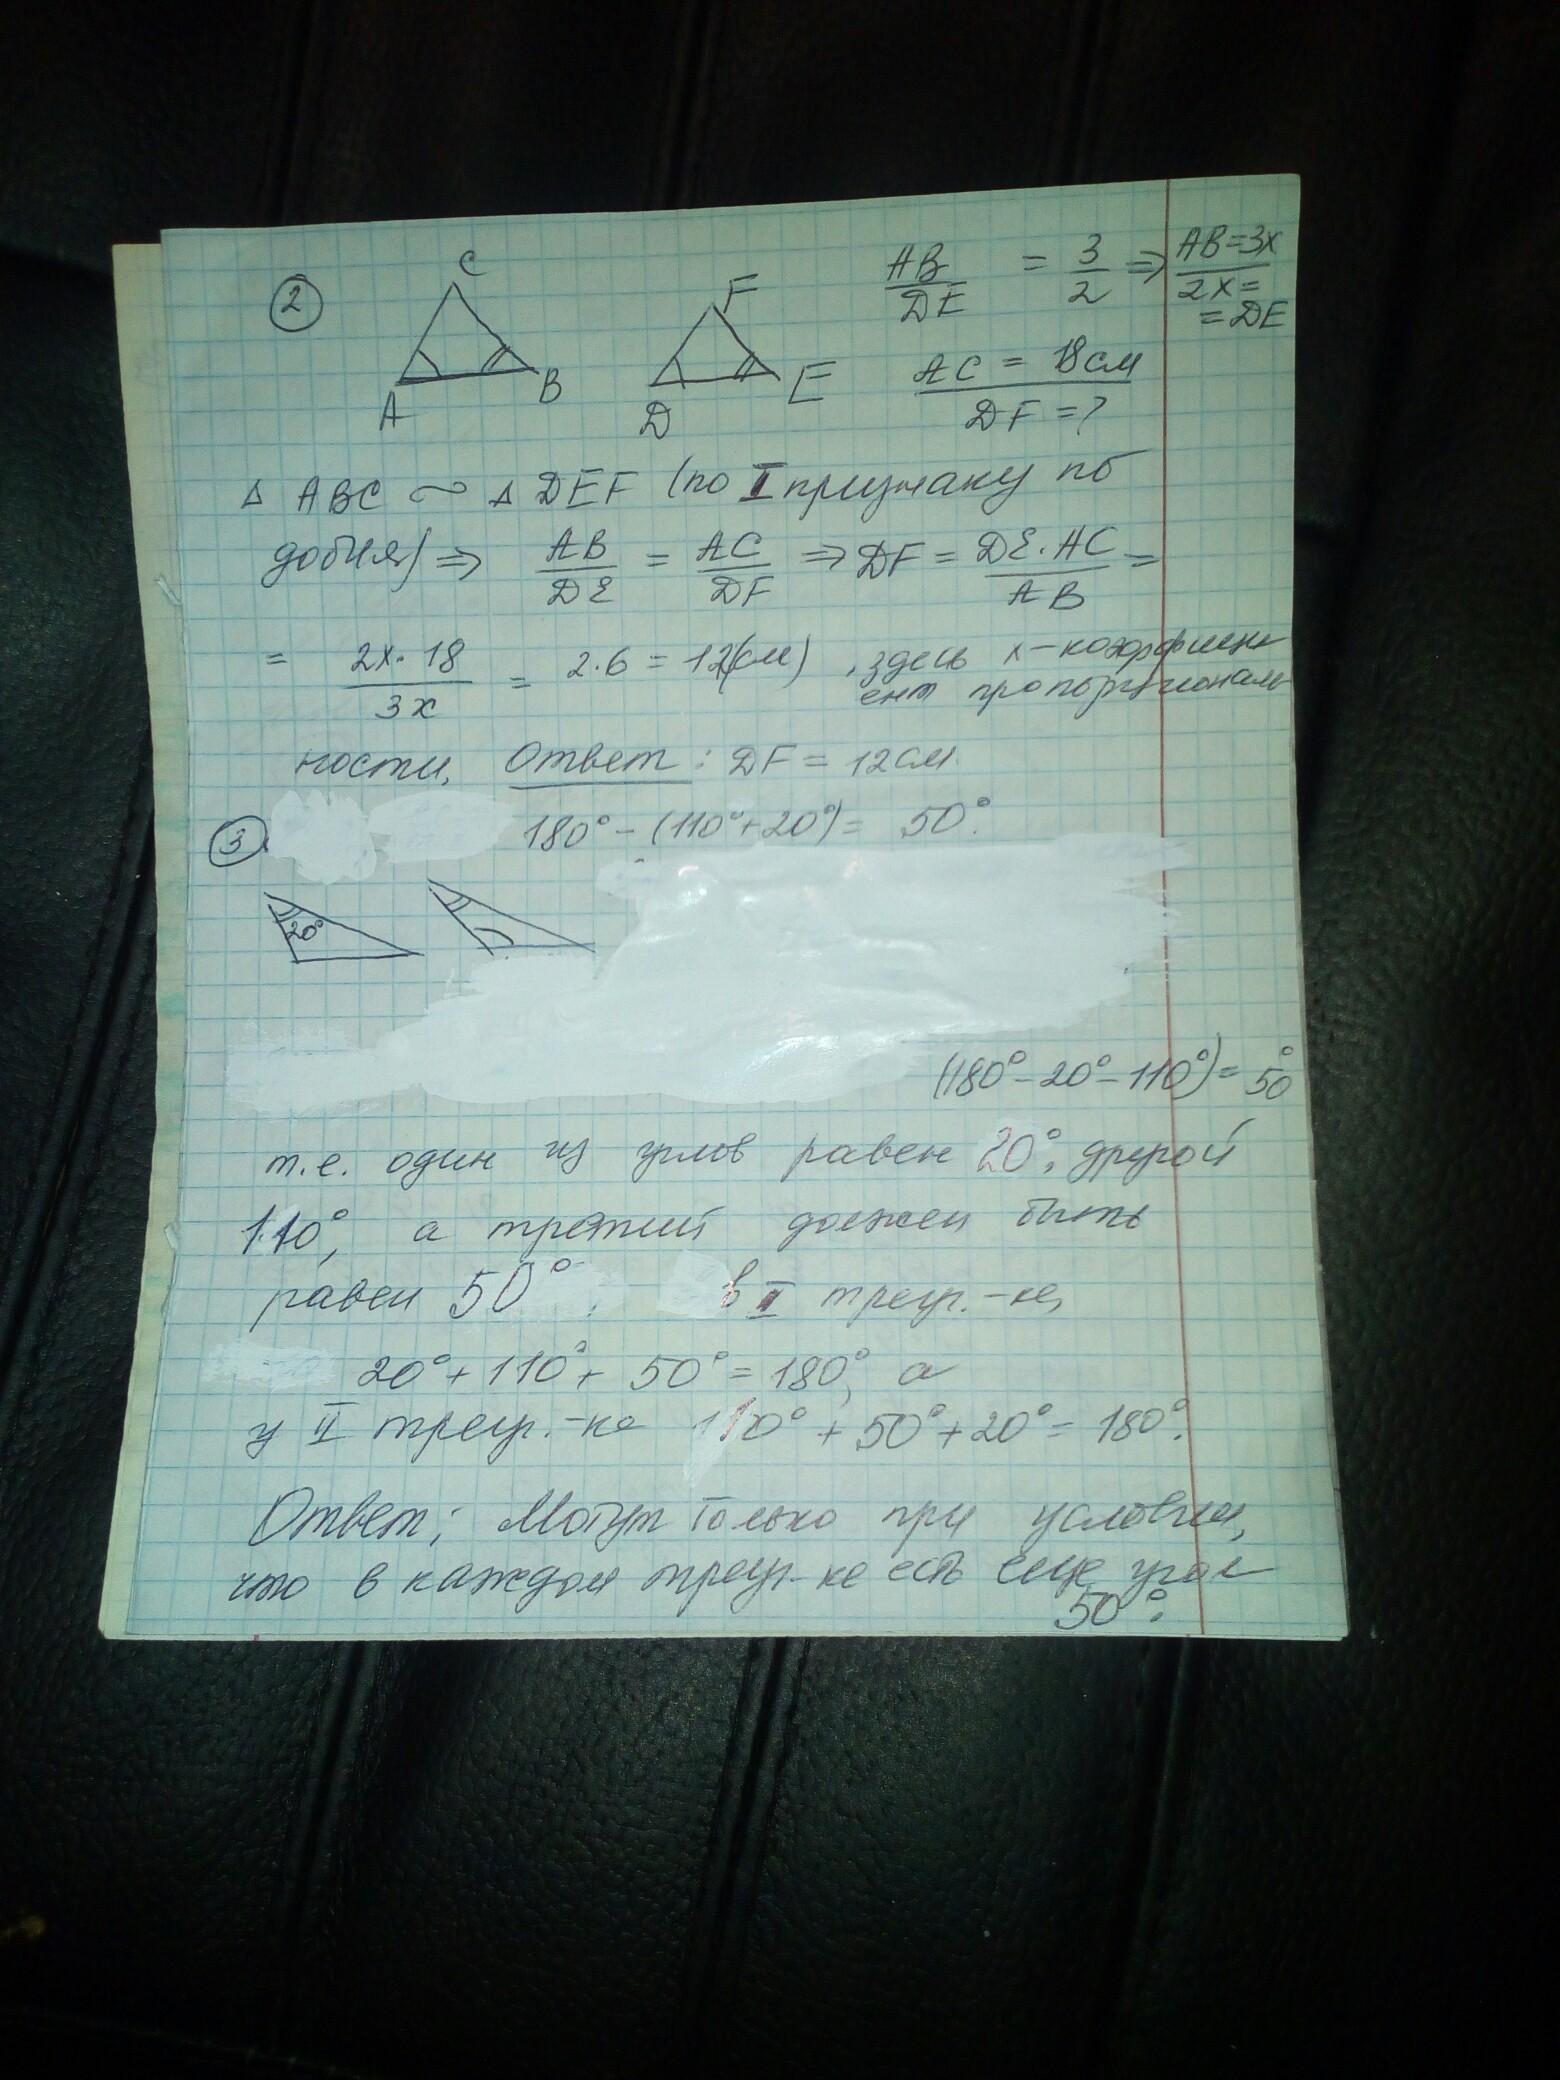 2
C
A
B
F
D
E
AB/DE = 3/2 => AB=3x
2x=
=DE
AC = 18см
DF = ?
△ ABC ∼ △ DEF (по I признаку по
добия) => AB/DE = AC/DF => DF = DE·AC/AB =
= 2x·18/3x = 2·6 = 12(см), здесь x-коэффици
ент пропорциональ
ности, Ответ: DF = 12см.
3. 180° - (110°+20°) = 50°.
20°
(180°-20°-110°)= 50°
т.е. один из углов равен 20°, другой
110°, а третий должен быть
равен 50°. в I треуг.-ке,
20°+110°+50°=180°, а
у II треуг.-ке 110°+50°+20°=180°.
Ответ: Могут только при условии,
что в каждом треуг-ке есть еще угол
50°.